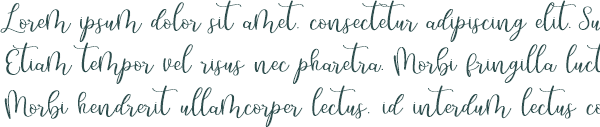 Lorem ipsum dolor sit amet, consectetur adipiscing elit. Su
Etiam tempor vel risus nec pharetra. Morbi fringilla luct
Morbi hendrerit ullamcorper lectus, id interdum lectus co